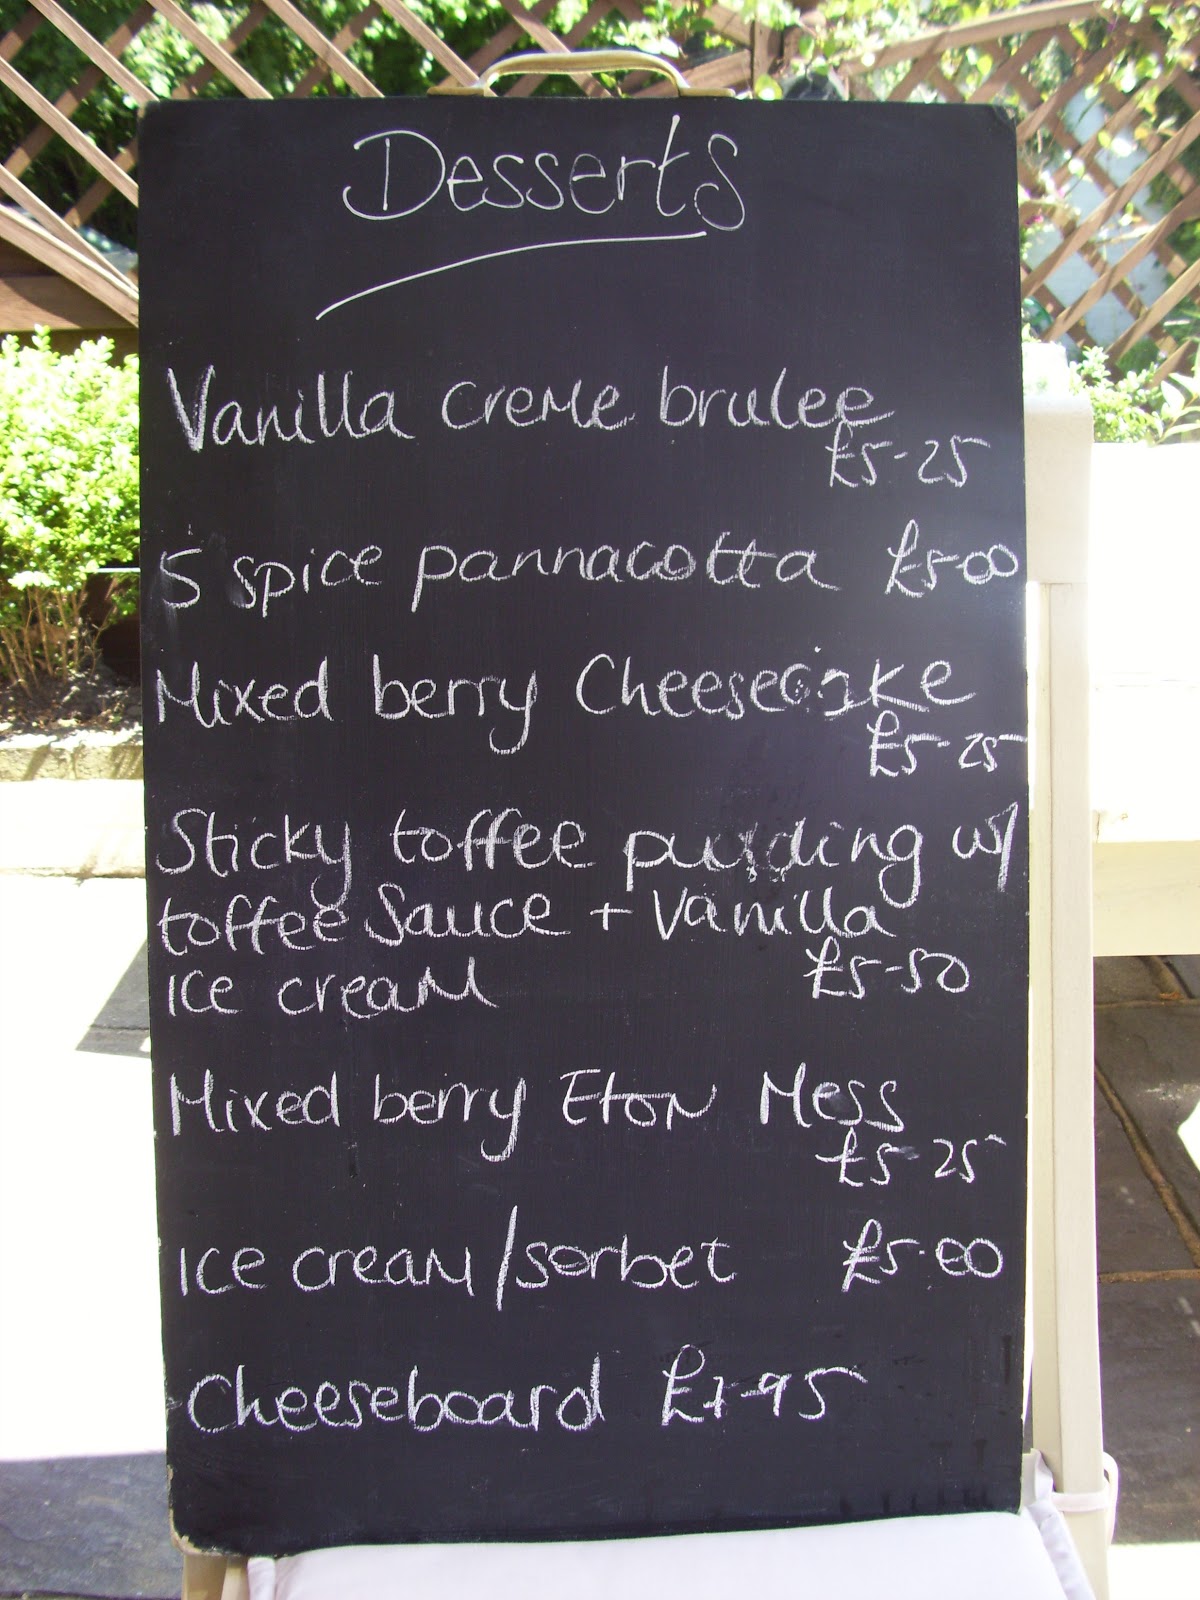 Desserts
Vanilla creme brulee
£5-25
5 spice pannacotta £5-00
Mixed berry Cheesecake
£5-25
Sticky toffee pudding w/
toffee Sauce + Vanilla
ice cream £5-50
Mixed berry Eton Mess
£5-25
ice cream/sorbet £5-00
Cheeseboard £7-95